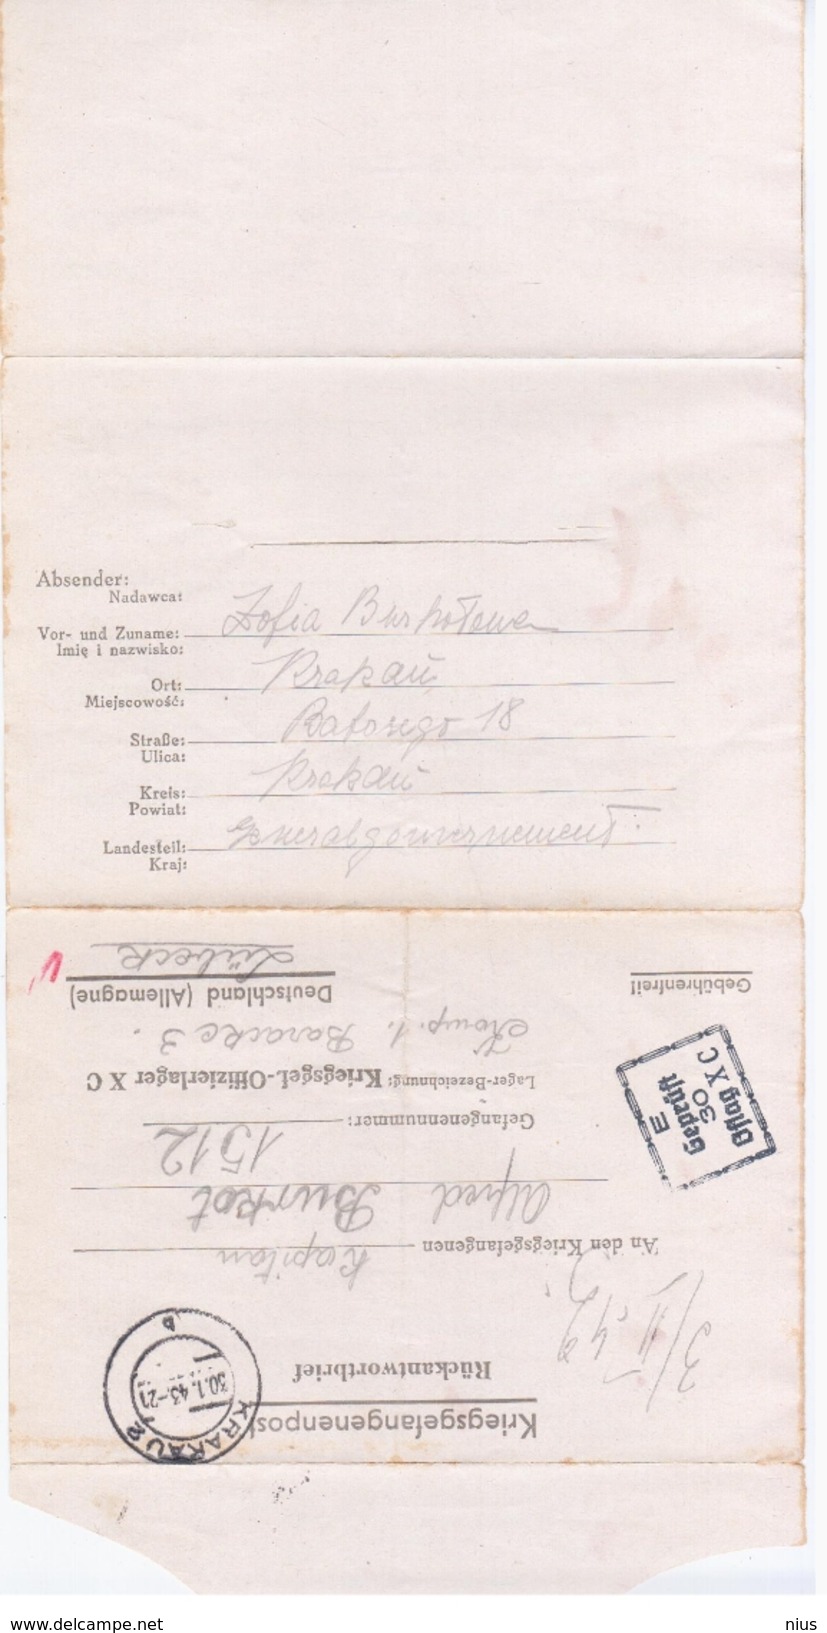 Absender:
Nadawca:
Vor- und Zuname: Zofia Burkotowa
Imię i nazwisko:
Ort: Krakau
Miejscowość:
Straße: Batorego 18
Ulica:
Kreis: Krakau
Powiat:
Landesteil: Generalgouvernement.
Kraj:
Kriegsgefangenenpost
KRAKAU 2
30.1.43-21
b
Rückantwortbrief
An den Kriegsgefangenen Kapitan
Alfred Burkot
Gefangenennummer: 1512
Lager-Bezeichnung: Kriegsgef.-Offizierlager X C
Komp. 1. Baracke 3.
Deutschland (Allemagne)
Lübeck
Gebührenfrei!
E
Geprüft
30
Oflag X C
delcampe.net
nius